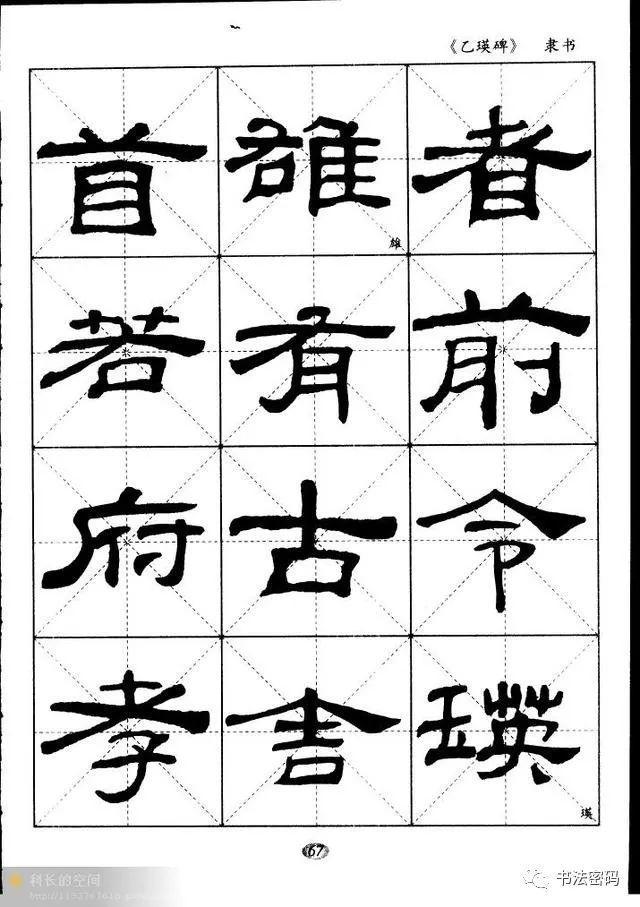 《乙瑛碑》 隶书
首 雄 者
雄
若 有 前
府 古 令
孝 舍 瑛
瑛
67
科长的空间
书法密码